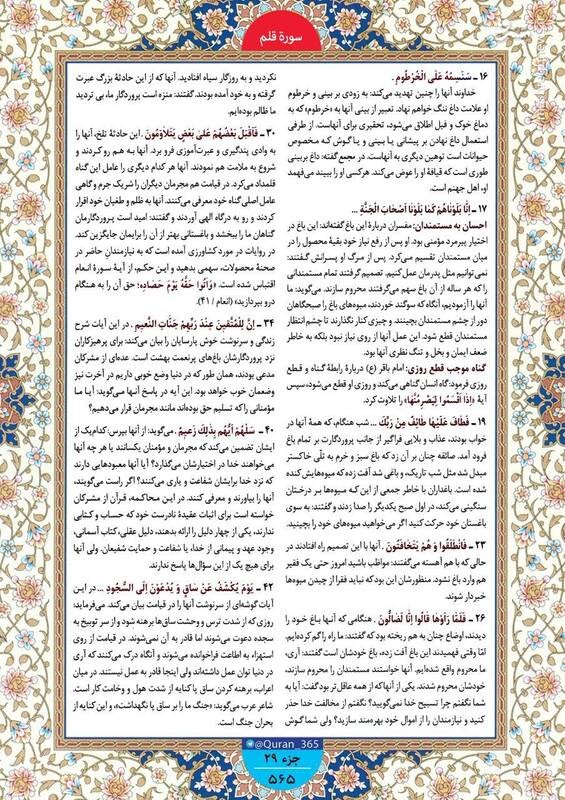 سورهٔ قلم
۱۶ ـ سَنَسِمُهُ عَلَى الْخُرْطُومِ .
خداوند آنها را چنین تهدید می‌کند: به زودی بر بینی و خرطوم
او علامت داغ ننگ خواهم نهاد. تعبیر از بینی آنها به «خرطوم» که به
دماغ خوک و فیل اطلاق می‌شود، تحقیری برای آنهاست. از طرفی
استعمال داغ نهادن بر پیشانی یا بینی و یا گوش که مخصوص
حیوانات است توهین دیگری به آنهاست. در مجمع گفته: داغ بر بینی
طوری است که قیافهٔ او را عوض می‌کند. هرکسی او را ببیند می‌فهمد
او، اهل جهنم است.
۱۷ ـ إِنَّا بَلَوْنَاهُمْ كَمَا بَلَوْنَا أَصْحَابَ الْجَنَّةِ ...
احسان به مستمندان: مفسران دربارهٔ این باغ گفته‌اند: این باغ در
اختیار پیرمرد مؤمنی بود. او پس از رفع نیاز خود بقیهٔ محصول را در
میان مستمندان تقسیم می‌کرد. پس از مرگ او پسرانش گفتند:
نمی‌توانیم مثل پدرمان عمل کنیم. تصمیم گرفتند تمام مستمندانی
را که هر ساله از آن باغ سهم می‌گرفتند محروم سازند. می‌گوید: ما
آنها را آزمودیم، آنگاه که سوگند خوردند، میوه‌های باغ را صبحگاهان
دور از چشم مستمندان بچینند و چیزی کنار نگذارند تا چشم انتظار
مستمندان قطع شود. این عمل آنها از روی نیاز نبود بلکه به خاطر
ضعف ایمان و بخل و تنگ نظری آنها بود.
گناه موجب قطع روزی: امام باقر (ع) دربارهٔ رابطهٔ گناه و قطع
روزی فرمود: گاه انسان گناهی می‌کند و روزی او قطع می‌شود، سپس
آیهٔ «إِذْ أَقْسَمُوا لَيَصْرِمُنَّهَا» را تلاوت کرد.
۱۹ ـ فَطَافَ عَلَيْهَا طَائِفٌ مِنْ رَبِّكَ ... شب هنگام، که همهٔ آنها در
خواب بودند، عذاب و بلایی فراگیر از جانب پروردگارت بر تمام باغ
فرود آمد. صائقه چنان بر آن زد که باغ سبز و خرم به تلّی خاکستر
مبدل شد مثل شب تاریک، و باغی شد آفت زده که میوه‌هایش کنده
شده است. باغداران با خاطر جمعی از این که میوه‌ها بر درختان
سنگینی می‌کند، در اول صبح یکدیگر را صدا زدند و گفتند: به سوی
باغستان خود حرکت کنید اگر می‌خواهید میوه‌های خود را بچینید.
۲۳ ـ فَانْطَلَقُوا وَ هُمْ يَتَخَافَتُونَ . آنها با این تصمیم راه افتادند در
حالی که با هم آهسته می‌گفتند: مواظب باشید امروز حتی یک فقیر
هم وارد باغ نشود. منظورشان این بود که نباید فقرا از چیدن میوه‌ها
خبردار شوند.
۲۶ ـ فَلَمَّا رَأَوْهَا قَالُوا إِنَّا لَضَالُّونَ . هنگامی که آنها باغ خود را
دیدند، اوضاع چنان به هم ریخته بود که گفتند: ما راه را گم کرده‌ایم.
امّا وقتی فهمیدند این باغ آفت زده، باغ خودشان است گفتند: آری،
ما محروم واقع شده‌ایم. آنها خواستند مستمندان را محروم سازند،
خودشان محروم شدند. یکی از آنها که از همه عاقل‌تر بود گفت: آیا به
شما نگفتم چرا تسبیح خدا نمی‌گویید؟ نگفتم از مخالفت خدا حذر
کنید و نیازمندان را از اموال خود بهره‌مند سازید؟ ولی شما گوش
نکردید و به روزگار سیاه افتادید. آنها که از این حادثهٔ بزرگ عبرت
گرفته و به خود آمده بودند. گفتند: منزه است پروردگار ما، بی تردید
ما ظالم بوده‌ایم.
۳۰ ـ فَأَقْبَلَ بَعْضُهُمْ عَلَىٰ بَعْضٍ يَتَلَاوَمُونَ . این حادثهٔ تلخ، آنها را
به وادی پندگیری و عبرت‌آموزی فرو برد. آنها به هم رو کردند و
شروع به ملامت هم نمودند. آنها هر کدام دیگری را عامل این گناه
قلمداد می‌کرد. در قیامت هم مجرمان دیگران را شریک جرم و گاهی
عامل اصلی گناه خود معرفی می‌کنند. آنها به ظلم و طغیان خود اقرار
کردند و رو به درگاه الهی آوردند و گفتند: امید است پروردگارمان
گناهان ما را ببخشد و باغستانی بهتر از آن را برایمان جایگزین کند.
در روایات در مورد کشاورزی آمده است که به نیازمندانِ حاضر در
صحنهٔ محصولات، سهمی بدهید و این حکم، از آیهٔ سورهٔ انعام
اقتباس شده است. «وَ آتُوا حَقَّهُ يَوْمَ حَصَادِهِ؛ حق آن را به هنگام
درو بپردازید» (انعام / ۴۱).
۳۴ ـ إِنَّ لِلْمُتَّقِينَ عِنْدَ رَبِّهِمْ جَنَّاتِ النَّعِيمِ . در این آیات شرح
زندگی و سرنوشت خوش پارسایان را بیان می‌کند: برای پرهیزکاران
نزد پروردگارشان باغ‌های پرنعمت بهشت است. عده‌ای از مشرکان
مدعی بودند، همان طور که در دنیا وضع خوبی داریم در آخرت نیز
وضعمان خوب خواهد بود. این آیه در پاسخ آنها می‌گوید: آیا ما
مؤمنانی را که تسلیم حق بوده‌اند مانند مجرمان قرار می‌دهیم؟
۴۰ ـ سَلْهُمْ أَيُّهُمْ بِذَلِكَ زَعِيمٌ . می‌گوید: از آنها بپرس: کدام‌یک از
ایشان تضمین می‌کند که مجرمان و مؤمنان یکسانند یا هر چه آنها
می‌خواهند خدا در اختیارشان می‌گذارد؟ آیا آنها معبودهایی دارند
که نزد خدا برایشان شفاعت و یاری می‌کنند؟ اگر راست می‌گویند،
آنها را بیاورند و معرفی کنند. در این محاکمه، قرآن از مشرکان
خواسته است برای اثبات عقیدهٔ نادرست خود که حساب و کتابی
ندارند، یکی از چهار دلیل را ارائه بدهند، دلیل عقلی، کتاب آسمانی،
وجود عهد و پیمانی از خدا، یا شفاعت و حمایت شفیعان. ولی آنها
برای هیچ یک از این سؤال‌ها پاسخ ندارند.
۴۲ ـ يَوْمَ يُكْشَفُ عَنْ سَاقٍ وَ يُدْعَوْنَ إِلَى السُّجُودِ ... در این
آیات گوشه‌ای از سرنوشت آنها را در قیامت بیان می‌کند. می‌فرماید:
روزی که از شدت ترس و وحشت ساق‌ها برهنه شود و از سر توبیخ به
سجده دعوت می‌شوند اما قادر به آن نمی‌شوند. در قیامت از روی
استهزاء به اطاعت فراخوانده می‌شوند و آنگاه درک می‌کنند که آری
در دنیا توان عمل داشته‌اند ولی اینجا قادر به عمل نیستند. در میان
اعراب، برهنه کردن ساق پا کنایه از شدت هول و وخامت کار است.
شاعر عرب می‌گوید: «جنگ ما را بر ساق پا نگهداشت»، و این کنایه از
بحران جنگ است.
@Quran_365
جزء ۲۹
۵۶۵